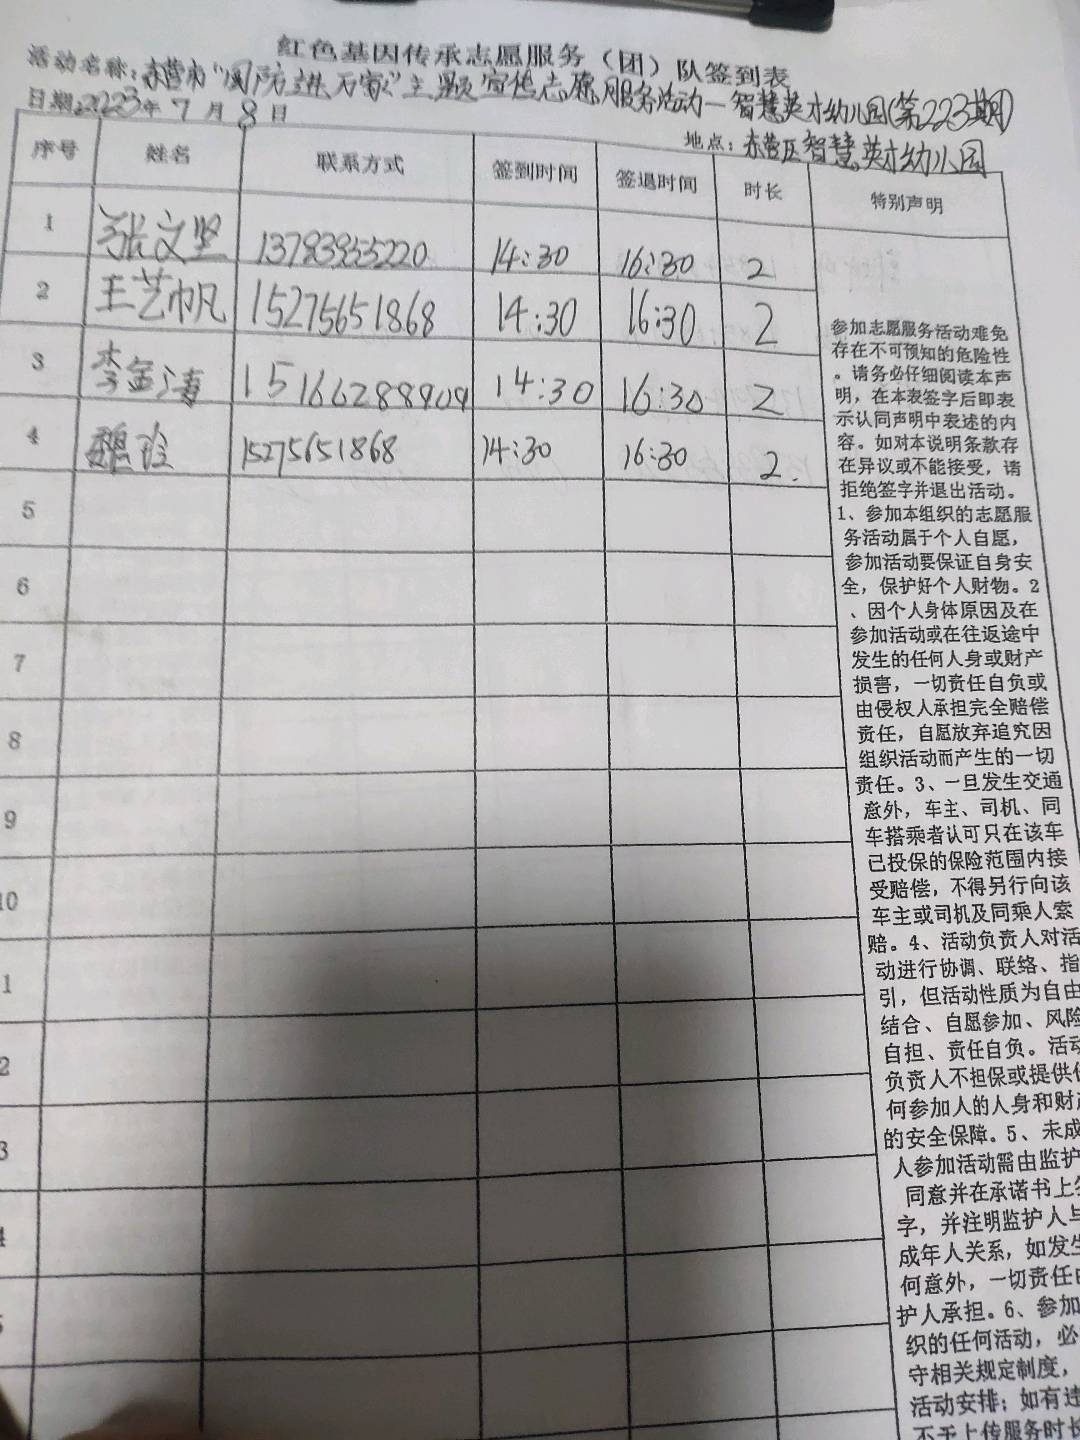 红色基因传承志愿服务（团）队签到表
活动名称：东营市“国防进万家”主题宣传志愿服务活动—智慧英才幼儿园(第223期)
日期：2023年7月8日
地点：东营区智慧英才幼儿园
序号 姓名 联系方式 签到时间 签退时间 时长 特别声明
1 张文坚 13793955220 14:30 16:30 2
2 王艺帆 15275651868 14:30 16:30 2
3 李金涛 15166288909 14:30 16:30 2
4 魏玲 15275651868 14:30 16:30 2.
5
6
7
8
9
10
1
2
3
4
5
参加志愿服务活动难免
存在不可预知的危险性
。请务必仔细阅读本声
明，在本表签字后即表
示认同声明中表述的内
容。如对本说明条款存
在异议或不能接受，请
拒绝签字并退出活动。
1、参加本组织的志愿服
务活动属于个人自愿，
参加活动要保证自身安
全，保护好个人财物。2
、因个人身体原因及在
参加活动或在往返途中
发生的任何人身或财产
损害，一切责任自负或
由侵权人承担完全赔偿
责任，自愿放弃追究因
组织活动而产生的一切
责任。3、一旦发生交通
意外，车主、司机、同
车搭乘者认可只在该车
已投保的保险范围内接
受赔偿，不得另行向该
车主或司机及同乘人索
赔。4、活动负责人对活
动进行协调、联络、指
引，但活动性质为自由
结合、自愿参加、风险
自担、责任自负。活动
负责人不担保或提供任
何参加人的人身和财产
的安全保障。5、未成
人参加活动需由监护
同意并在承诺书上签
字，并注明监护人与
成年人关系，如发生
何意外，一切责任由
护人承担。6、参加
织的任何活动，必
守相关规定制度，
活动安排；如有违
不予上传服务时长